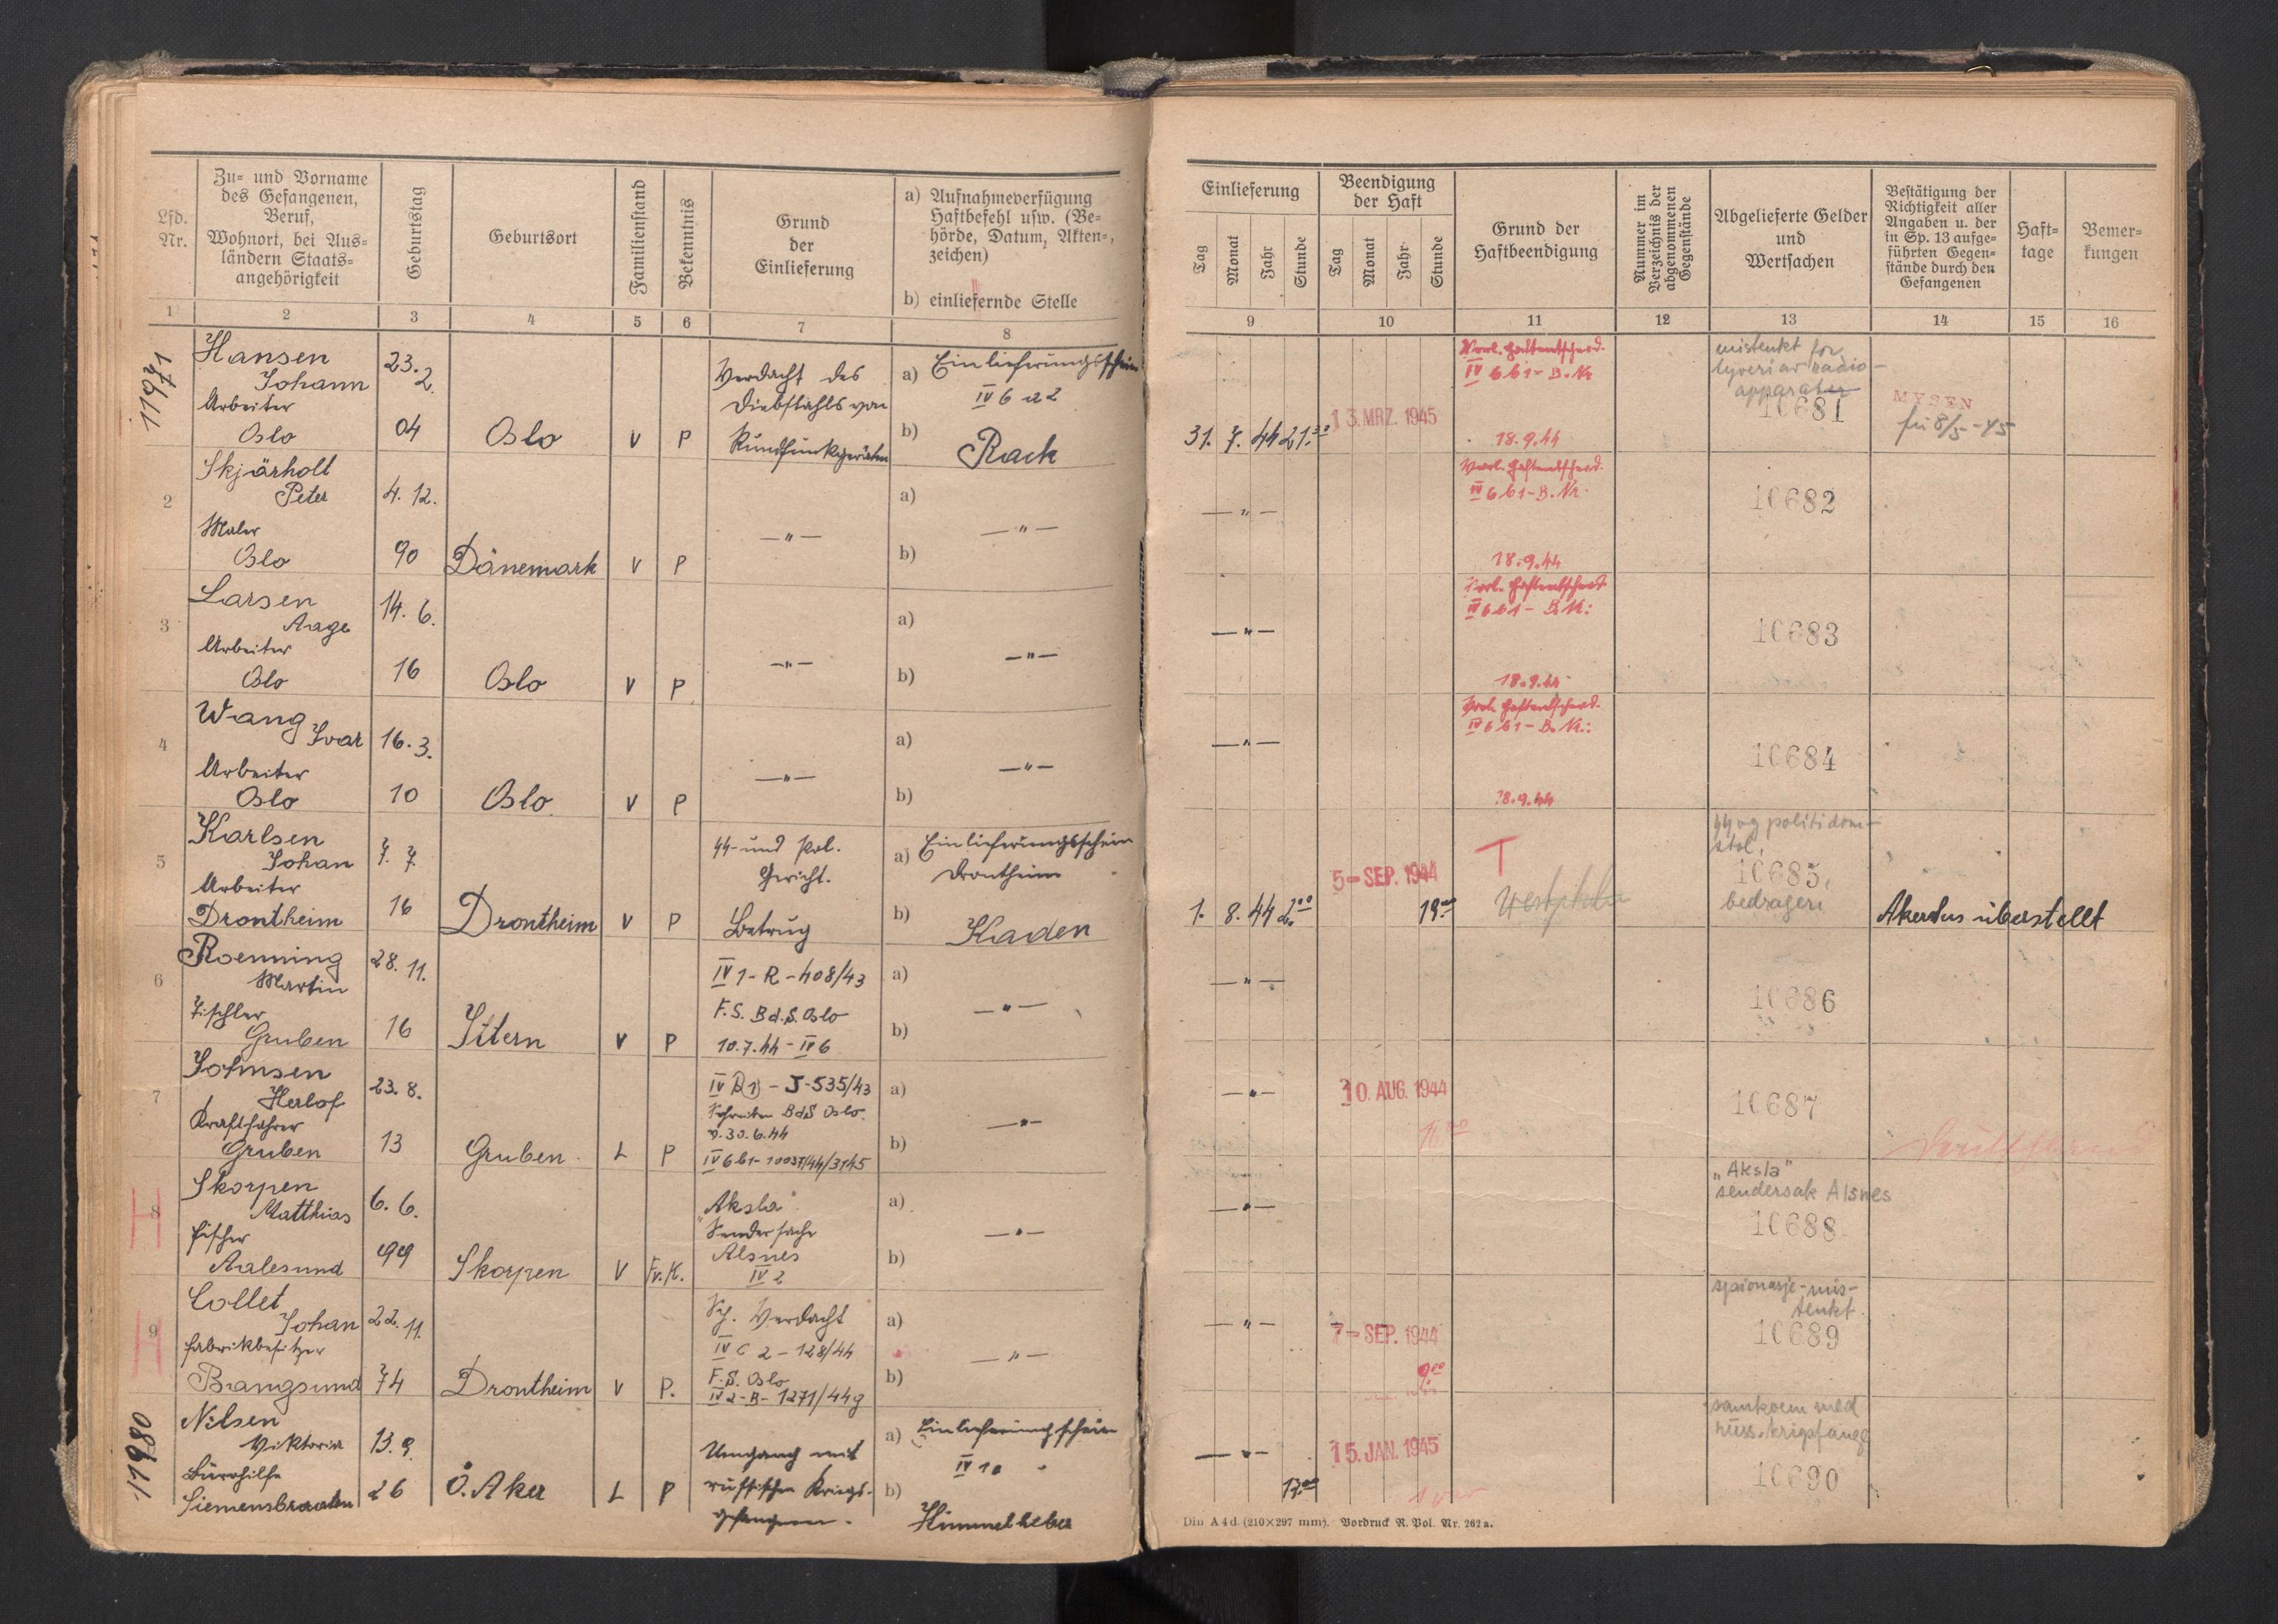 Lfd. Nr.
Zu= und Vorname
des Gefangenen,
Beruf,
Wohnort, bei Aus=
ländern Staats=
angehörigkeit
Geburtstag
Geburtsort
Familienstand
Bekenntnis
Grund
der
Einlieferung
a) Aufnahmeverfügung
Haftbefehl usw. (Be=
hörde, Datum, Akten=,
zeichen)
b) einliefernde Stelle
1 2 3 4 5 6 7 8
11971
Hansen
Johann
Arbeiter
Oslo
23. 2.
04
Oslo
V
P
Verdacht des
Diebstahls von
Rundfunkgeräten
a) Einlieferungsschein
IV 6 a 2
b) Rack
2
Skjärholt
Peter
Maler
Oslo
4. 12.
90
Dänemark
V
P
— " —
a)
— " —
b)
3
Larsen
Aage
Arbeiter
Oslo
14. 6.
16
Oslo
V
P
— " —
a)
— " —
b)
4
Wang
Ivar
Arbeiter
Oslo
16. 3.
10
Oslo
V
P
— " —
a)
— " —
b)
5
Karlsen
Johan
Arbeiter
Drontheim
7. 7.
16
Drontheim
V
P
SS- und Pol.
Gericht.
Betrug
a) Einlieferungsschein
Drontheim
b) Kaden
6
Roenning
Martin
Tischler
Gruben
28. 11.
16
Ytern
V
P
IV 1 - R - 408/43
F.S. BdS. Oslo
10.7.44 - IV 6
a)
— " —
b)
7
Johnsen
Herlof
Kraftfahrer
Gruben
23. 8.
13
Gruben
L
P
- J-535/43
Schreiben BdS Oslo.
v. 30.6.44
a)
— " —
b)
8
Skorpen
Matthias
Fischer
Aalesund
6. 6.
99
Skorpen
V
Ev. K.
"Aksla"
Sendersache
Alsnes
IV 2
a)
— " —
b)
9
Collet
Johan
Fabrikbesitzer
Bangsund
22. 11.
74
Drontheim
V
P.
Sp. Verdacht
IV C 2 - 128/44
F.S. Oslo
IV 2 - B - 1271/44g
a)
— " —
b)
11980
Nilsen
Viktoria
Bürohilfe
Siemensbraaten
13. 9.
26
Ö. Aker
L
P
Umgang mit
russischen Kriegs-
gefangenen.
a) Einlieferungsschein
b) Himmelheber
Einlieferung
Tag Monat Jahr Stunde
Beendigung
der Haft
Tag Monat Jahr Stunde
Grund der
Haftbeendigung
Nummer im
Verzeichnis der
abgenommenen
Gegenstände
Abgelieferte Gelder
und
Wertsachen
Bestätigung der
Richtigkeit aller
Angaben u. der
in Sp. 13 aufge=
führten Gegen=
stände durch den
Gefangenen
Haft=
tage
Bemer=
kungen
9 10 11 12 13 14 15 16
31. 7. 44 21.30
13. MRZ. 1945
IV 6 b 1 - B. Nr
18.9.44
mistenkt for
tyveri av radio-
apparater
10681
MYSEN
fri 8/5-45
— " —
IV 6 b 1 - B. Nr.
18.9.44
10682
— " —
IV 6 b 1 - B. Nr:
18.9.44
10683
— " —
IV 6 b 1 - B. Nr.:
18.9.44
10684
1. 8. 44 2.00
5 - SEP. 1944
19
T
Westphalen
SS og politidom-
stol,
10685,
bedrageri
Akershus überstellt
— " —
10686
— " —
10. AUG. 1944
10687
— " —
"Aksla"
sendersak Alsnes
10688
— " —
7 - SEP. 1944
9.00
spionasje-mis-
tenkt
10689
— " —
15. JAN. 1945
samkvem med
russ. krigsfange
10690
Din A 4 d. (210×297 mm). Vordruck R. Pol. Nr. 262 a.